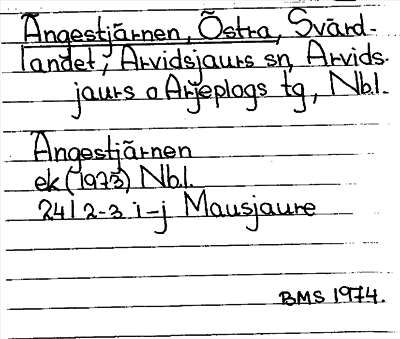 Ångestjärnen, Östra, Svärd-
landet, Arvidsjaurs sn, Arvids-
jaurs o Arjeplogs tg, Nbl.
Ångestjärnen
ek (1973) Nbl.
24I 2-3 i-j Mausjaure
BMS 1974.